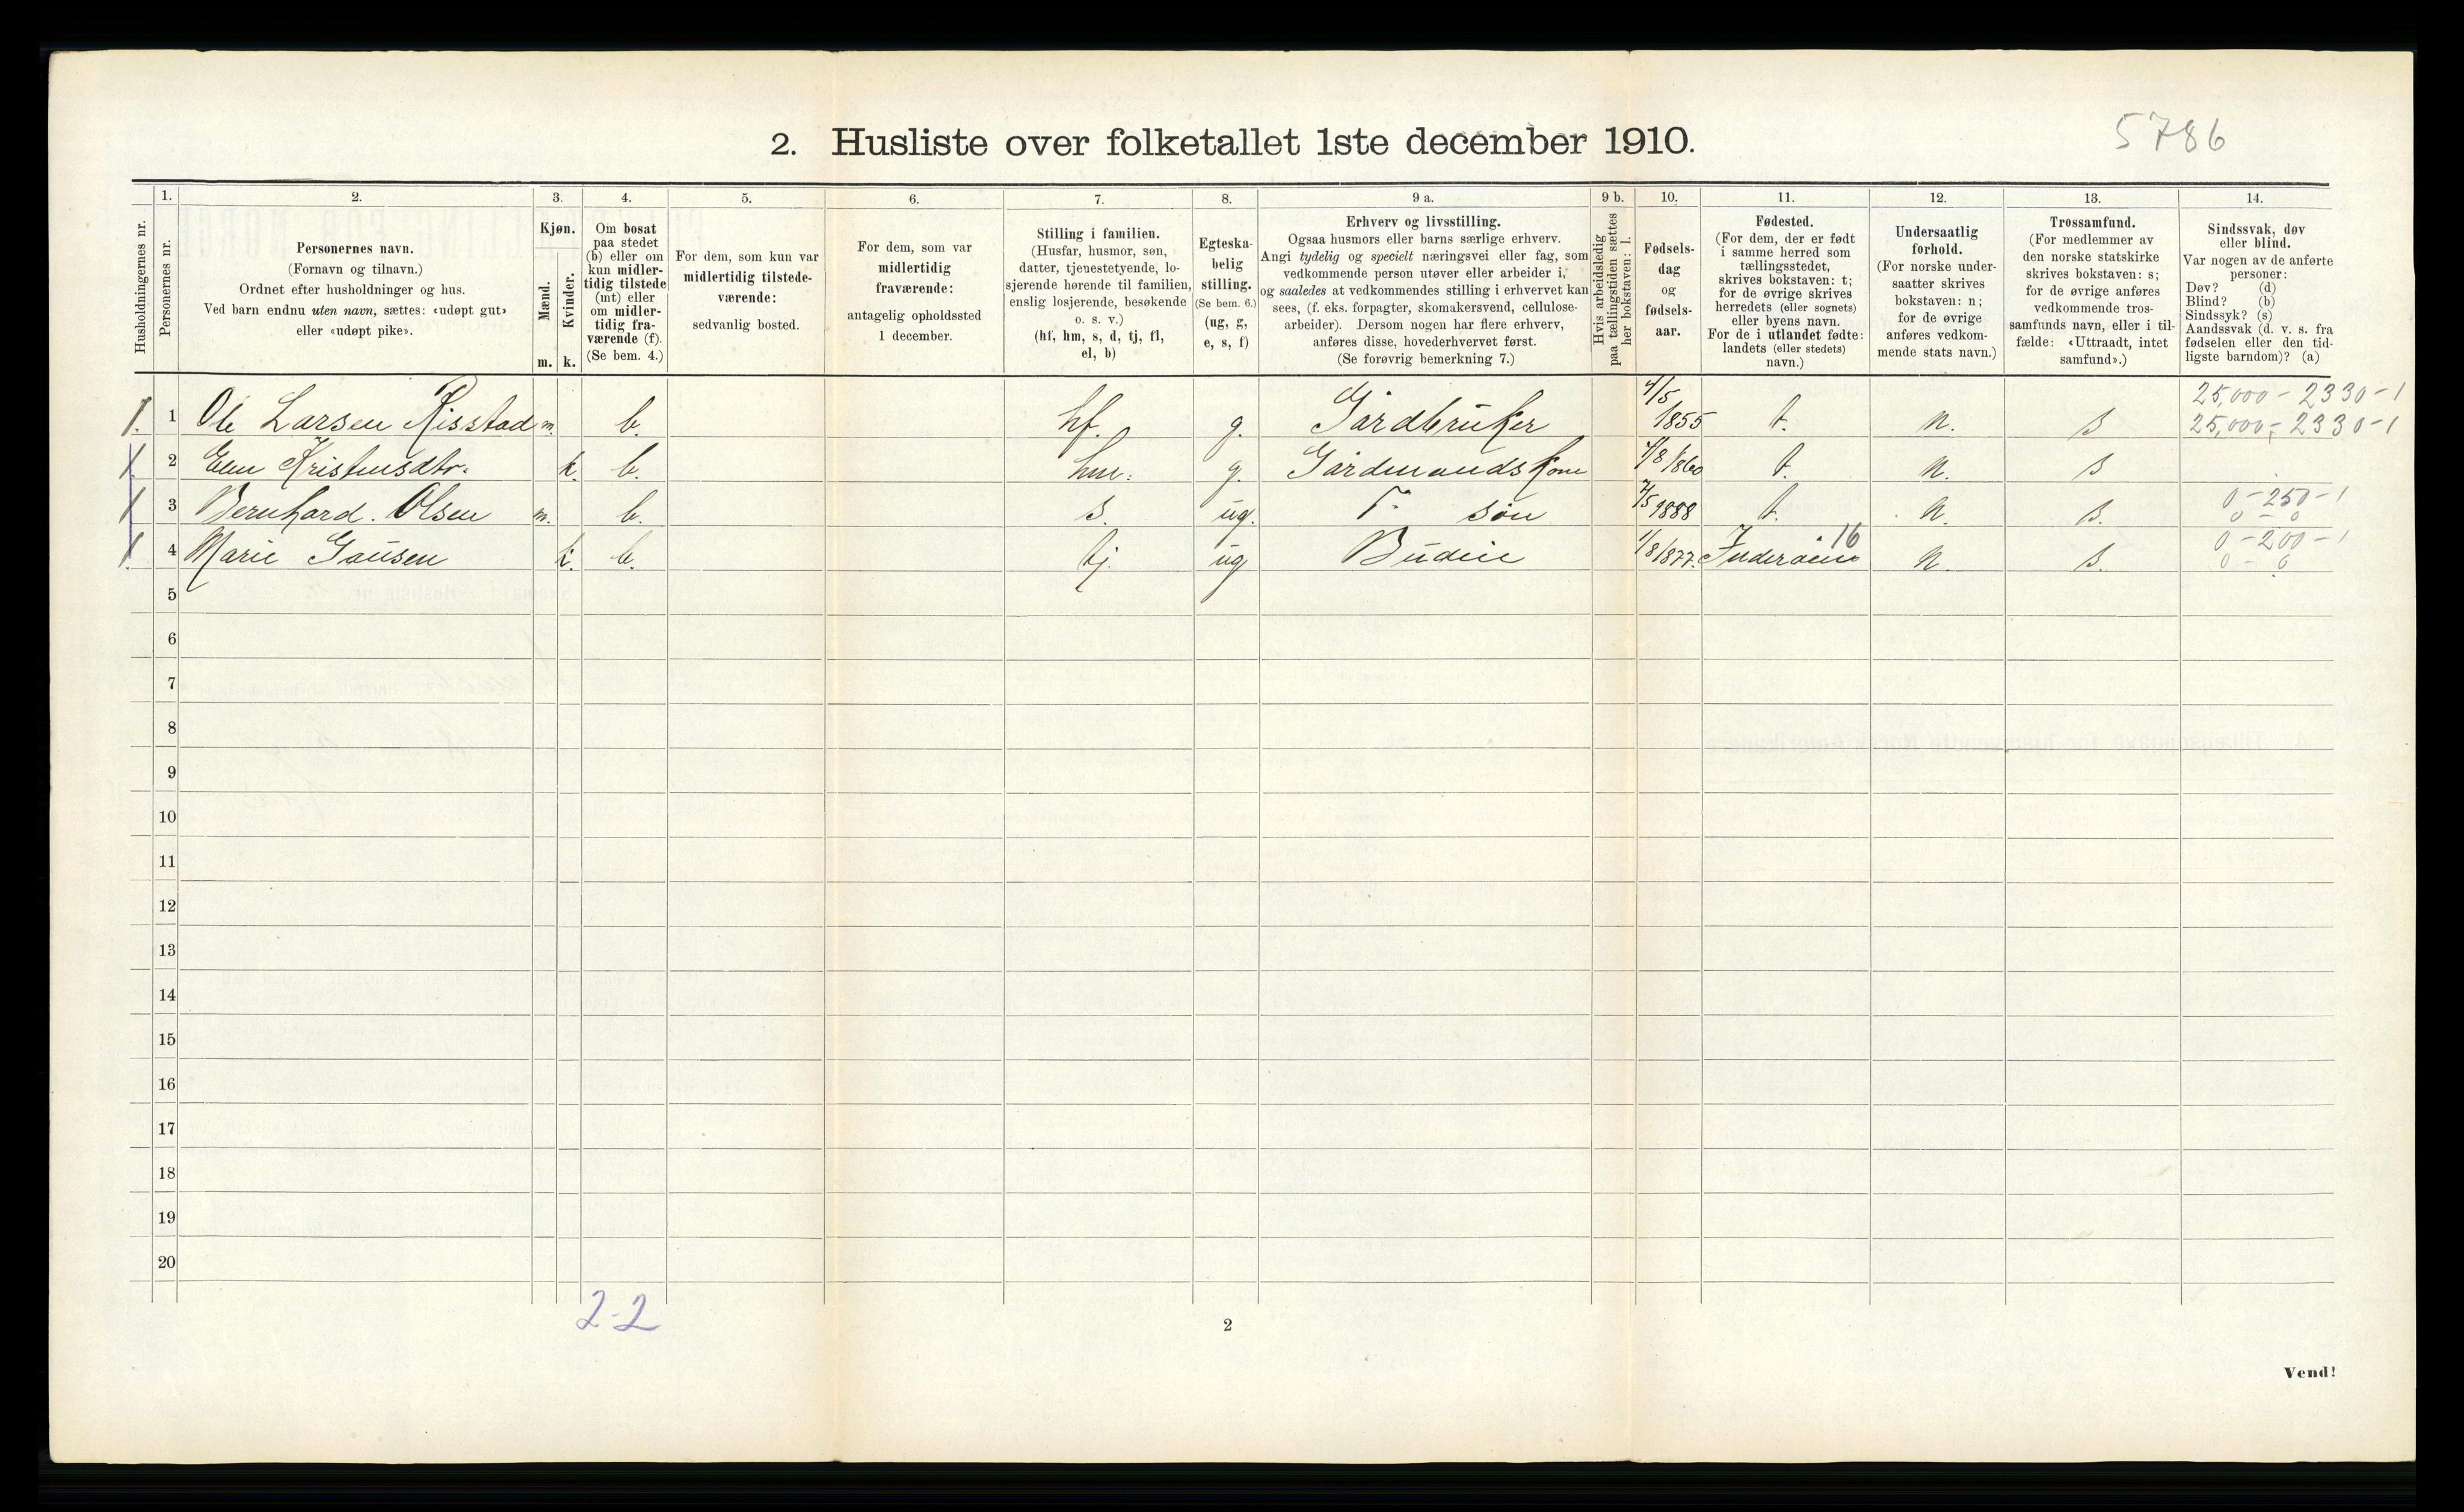 2. Husliste over folketallet 1ste december 1910.
5786
1. 2. 3. 4. 5. 6. 7. 8. 9 a. 9 b. 10. 11. 12. 13. 14.
Husholdningernes nr.
Personernes nr.
Personernes navn.
(Fornavn og tilnavn.)
Ordnet efter husholdninger og hus.
Ved barn endnu uten navn, sættes: «udøpt gut»
eller «udøpt pike».
Kjøn.
Mænd.
Kvinder.
m. k.
Om bosat
paa stedet
(b) eller om
kun midler-
tidig tilstede
(mt) eller
om midler-
tidig fra-
værende (f).
(Se bem. 4.)
For dem, som kun var
midlertidig tilstede-
værende:
sedvanlig bosted.
For dem, som var
midlertidig
fraværende:
antagelig opholdssted
1 december.
Stilling i familien.
(Husfar, husmor, søn,
datter, tjenestetyende, lo-
sjerende hørende til familien,
enslig losjerende, besøkende
o. s. v.)
(hf, hm, s, d, tj, fl,
el, b)
Egteska-
belig
stilling.
(Se bem. 6.)
(ug, g,
e, s, f)
Erhverv og livsstilling.
Ogsaa husmors eller barns særlige erhverv.
Angi tydelig og specielt næringsvei eller fag, som
vedkommende person utøver eller arbeider i,
og saaledes at vedkommendes stilling i erhvervet kan
sees, (f. eks. forpagter, skomakersvend, cellulose-
arbeider). Dersom nogen har flere erhverv,
anføres disse, hovederhvervet først.
(Se forøvrig bemerkning 7.)
Hvis arbeidsledig
paa tællingstiden sættes
her bokstaven: l.
Fødsels-
dag
og
fødsels-
aar.
Fødested.
(For dem, der er født
i samme herred som
tællingsstedet,
skrives bokstaven: t;
for de øvrige skrives
herredets (eller sognets)
eller byens navn.
For de i utlandet fødte:
landets (eller stedets)
navn.)
Undersaatlig
forhold.
(For norske under-
saatter skrives
bokstaven: n;
for de øvrige
anføres vedkom-
mende stats navn.)
Trossamfund.
(For medlemmer av
den norske statskirke
skrives bokstaven: s;
for de øvrige anføres
vedkommende tros-
samfunds navn, eller i til-
fælde: «Uttraadt, intet
samfund».)
Sindssvak, døv
eller blind.
Var nogen av de anførte
personer:
Døv? (d)
Blind? (b)
Sindssyk? (s)
Aandssvak (d. v. s. fra
fødselen eller den tid-
ligste barndom)? (a)
25,000 - 2330 - 1
1. 1 Ole Larsen Risstad m. b. hf. g. Gårdbruker 4/5 1855 t. n. s 25,000 - 2330 - 1
1 2 Elen Kristensdtr. k. b. hm. g. Gårdmandskone 4/8 1860 t. n. s
0 - 250 - 1
1 3 Bernhard. Olsen m. b. s. ug. søn 1888 t. n. s. 0 - 0
16 0 - 200 - 1
1 4 Marie Gausen k. b. tj. ug Budeie 1/8 1877. Inderøen n. s. 0 - 0
5
6
7
8
9
10
11
12
13
14
15
16
17
18
19
20
2-2
2
Vend!